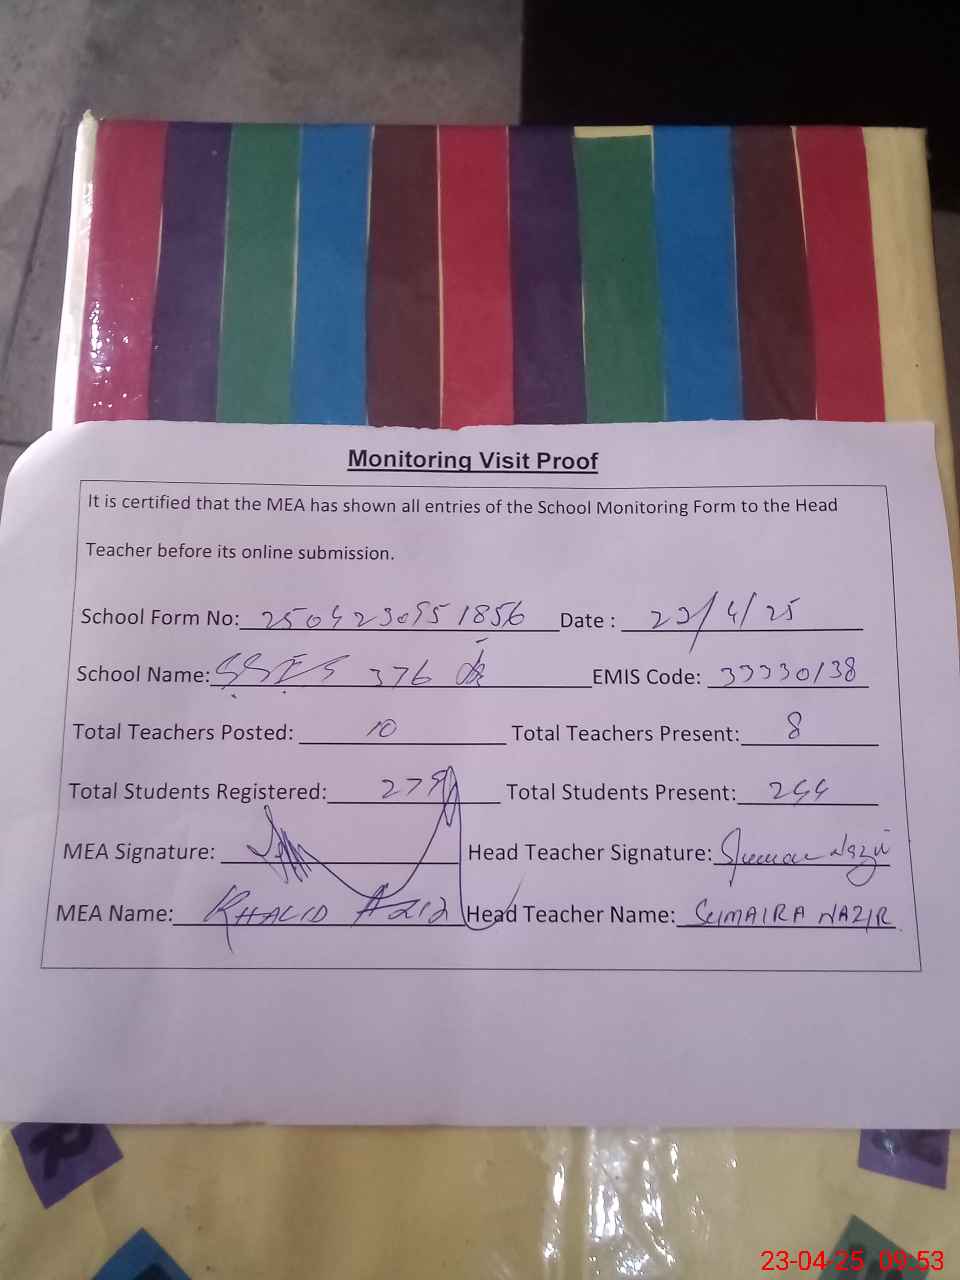 Monitoring Visit Proof
It is certified that the MEA has shown all entries of the School Monitoring Form to the Head
Teacher before its online submission.
School Form No: 2504230951856 Date : 23/4/25
School Name: 376 EMIS Code: 33330138
Total Teachers Posted: 10 Total Teachers Present: 8
Total Students Registered: Total Students Present: 244
MEA Signature: Head Teacher Signature: Sumaira Nazir
MEA Name: KHALID AZIZ Head Teacher Name: SUMAIRA NAZIR
R
23-04-25 09:53